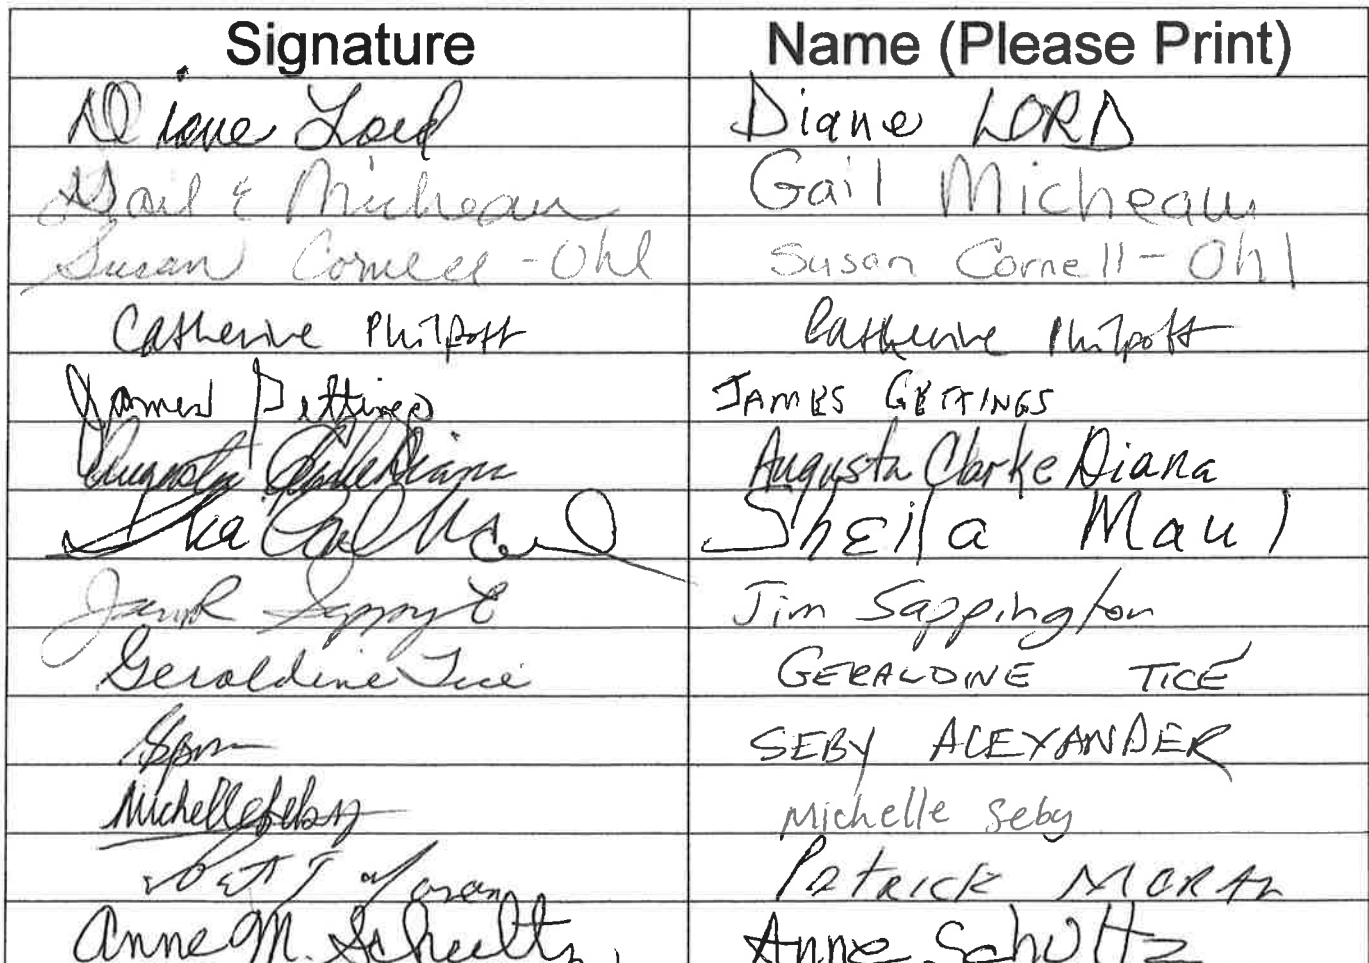 Signature Name (Please Print)
Diane Lord Diane LORD
Gail E Micheau Gail Micheau
Susan Cornell-Ohl Susan Cornell-Ohl
Catherine Philpott Catherine Philpott
James Gettings JAMES GETTINGS
Augusta Clarke Diana Augusta Clarke Diana
Sheila Maul
Jim Sappington
Geraldine Tice GERALDINE TICE
SEBY ALEXANDER
Michelle Seby Michelle Seby
Pat J Moran PATRICK MORAN
Anne M. Schultz Anne Schultz